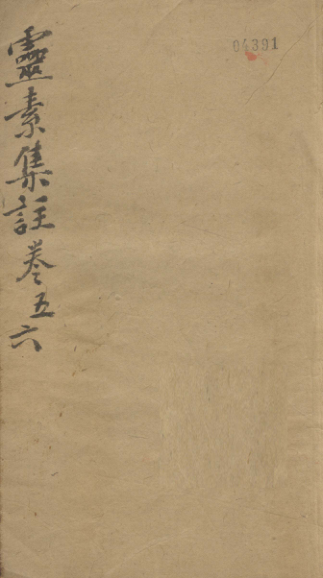 靈素集註卷五六
04391